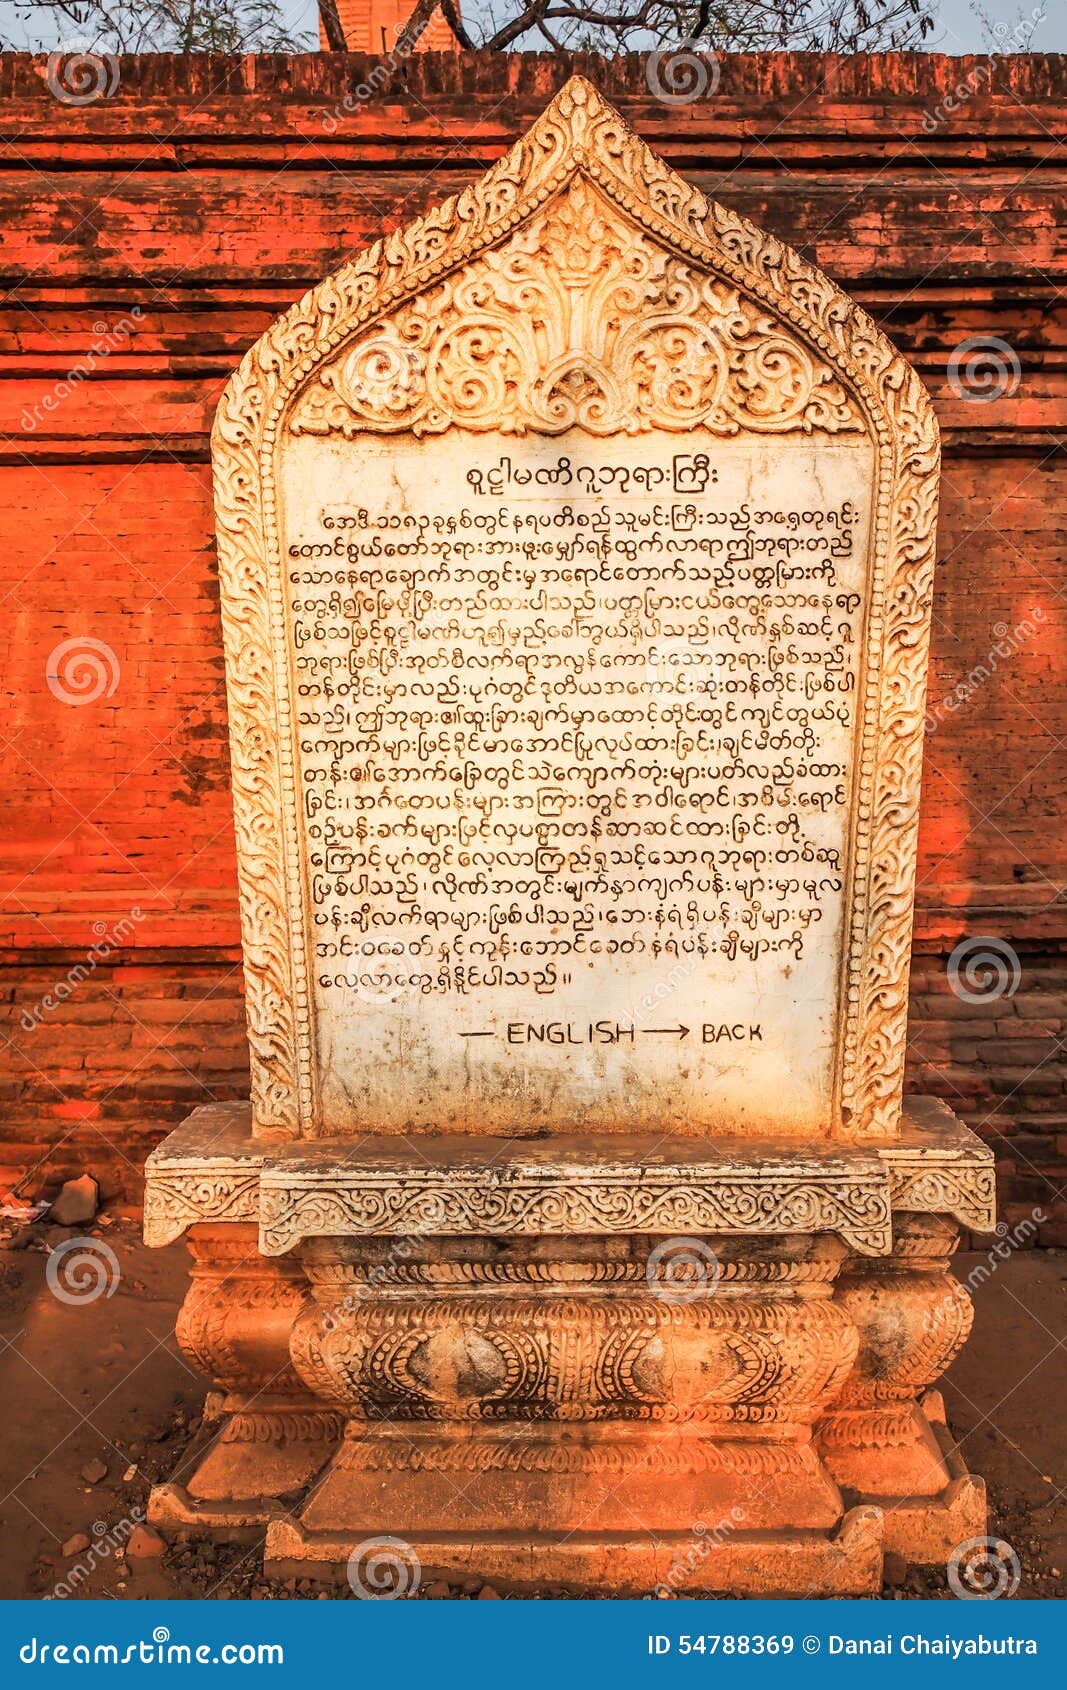 စူဠါမဏိဂူဘုရားကြီး
အေဒီ ၁၁၈၃ခုနှစ်တွင်နရပတိစည်သူမင်းကြီးသည်အရှေ့တုရင်း
တောင်စွယ်တော်ဘုရားအားဖူးမျှော်ရန်ထွက်လာရာဤဘုရားတည်
သောနေရာချောက်အတွင်းမှအရောင်တောက်သည့်ပတ္တမြားကို
တွေ့ရှိ၍မြေဖို့ပြီးတည်ထားပါသည်၊ပတ္တမြားငယ်တွေ့သောနေရာ
ဖြစ်သဖြင့်စူဠါမဏိဟူ၍မှည့်ခေါ်ဘွယ်ရှိပါသည်၊လိုဏ်နှစ်ဆင့်ဂူ
ဘုရားဖြစ်ပြီးအုတ်စီလက်ရာအလွန်ကောင်းသောဘုရားဖြစ်သည်၊
တန်တိုင်းမှာလည်းပုဂံတွင်ဒုတိယအကောင်းဆုံးတန်တိုင်းဖြစ်ပါ
သည်၊ဤဘုရား၏ထူးခြားချက်မှာထောင့်တိုင်းတွင်ကျင်တွယ်ပုံ
ကျောက်များဖြင့်ခိုင်မာအောင်ပြုလုပ်ထားခြင်း၊ချင်မိတ်တိုး
တန်း၏အောက်ခြေတွင်သဲကျောက်တုံးများပတ်လည်ခံထား
ခြင်း၊အင်္ဂတေပန်းများအကြားတွင်အဝါရောင်၊အစိမ်းရောင်
စဉ့်ပန်းခက်များဖြင့်လှပစွာတန်ဆာဆင်ထားခြင်းတို့
ကြောင့်ပုဂံတွင်လေ့လာကြည့်ရှုသင့်သောဂူဘုရားတစ်ဆူ
ဖြစ်ပါသည်၊လိုဏ်အတွင်းမျက်နှာကျက်ပန်းများမှာမူလ
ပန်းချီလက်ရာများဖြစ်ပါသည်၊ဘေးနံရံရှိပန်းချီများမှာ
အင်းဝခေတ်နှင့်ကုန်းဘောင်ခေတ်နံရံပန်းချီများကို
လေ့လာတွေ့ရှိနိုင်ပါသည်။
— ENGLISH → BACK
dreamstime.com
ID 54788369 © Danai Chaiyabutra